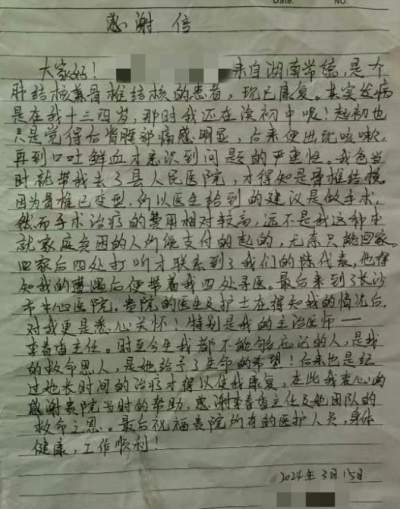 Date. NO.
感谢信
大家好！ 来自湖南常德，是个
肺结核兼脊椎结核的患者，现已康复。其实发病
是在我十三四岁，那时我还在读初中呢！起初也
只是觉得后背腰部痛感明显，后来便出现咳嗽
再到口吐鲜血才意识到问题的严重性。我爸当
时就带我去了县人民医院，才得知是脊椎结核，
因为脊椎已变型，所以医生给到的建议是做手术，
然而手术治疗的费用相对较高，远不是我这种本
就家庭贫困的人所能支付的起的，无奈只能回家。
回家后四处打听才联系到了我们的陈代表，他得
知我的遭遇后便带着我四处寻医。最后来到了长沙
市中心医院，贵院的医生及护士在得知我的情况后，
对我更是悉心关怀！特别是我的主治医师一
李春香主任。时至今日我都不能够忘记的人，是我
的救命恩人，是她给予了生命的希望！后来也是经
过她长时间的治疗才得以使我康复，在此我衷心的
感谢贵院当时的帮助，感谢李春香主任及她团队的
救命之恩。最后祝福贵院所有的医护人员，身体
健康，工作顺利！
2024年3月15日